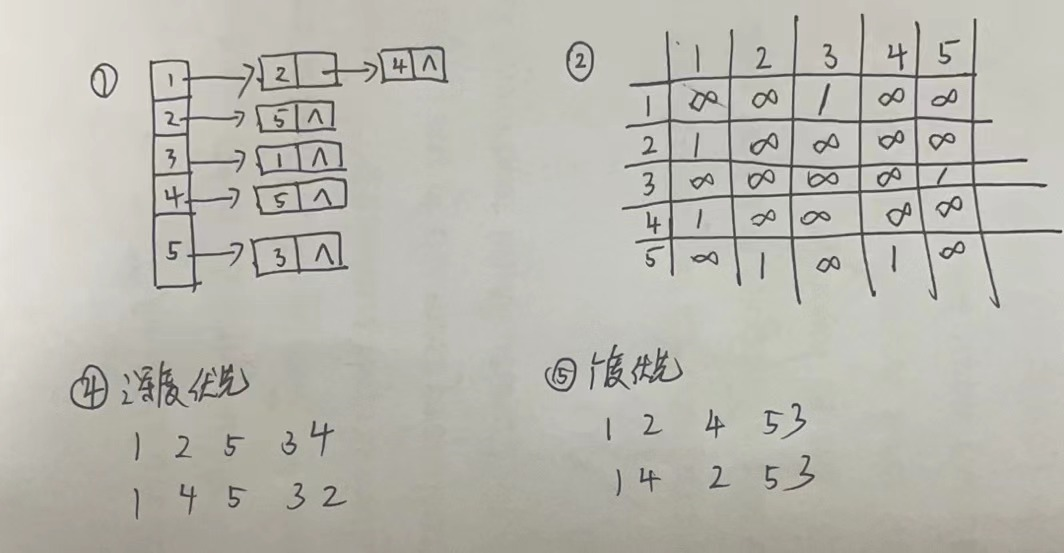 ①
1 2 4 ∧
2 5 ∧
3 1 ∧
4 5 ∧
5 3 ∧
②
1 2 3 4 5
1 ∞ ∞ 1 ∞ ∞
2 1 ∞ ∞ ∞ ∞
3 ∞ ∞ ∞ ∞ 1
4 1 ∞ ∞ ∞ ∞
5 ∞ 1 ∞ 1 ∞
④ 深度优先
1 2 5 3 4
1 4 5 3 2
⑤ 广度优先
1 2 4 5 3
1 4 2 5 3